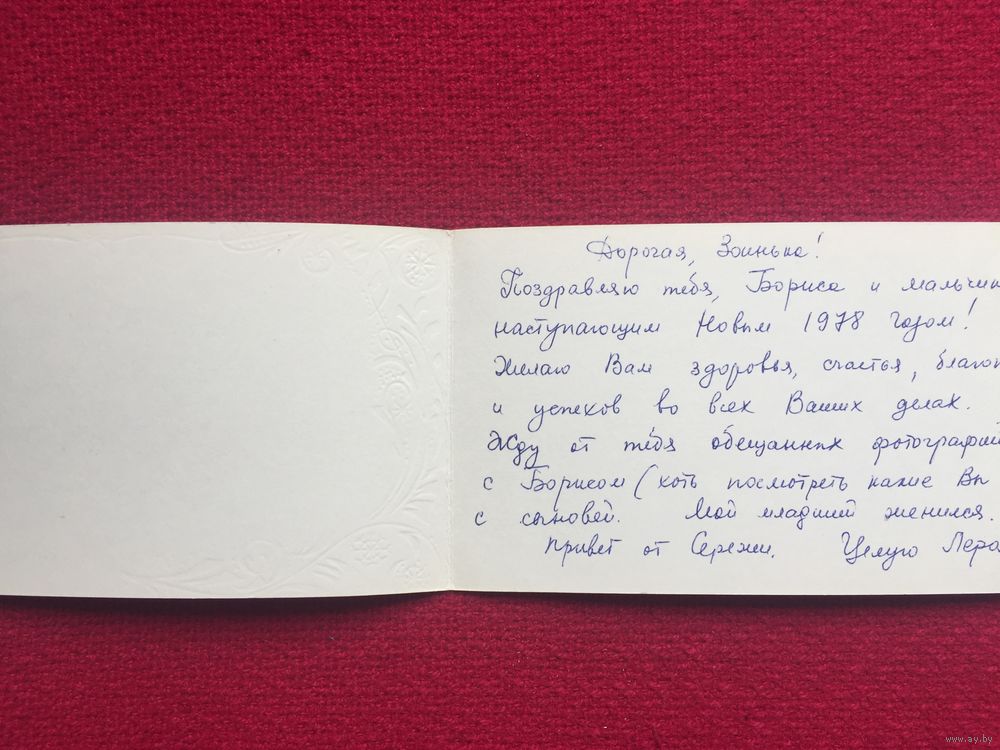 Дорогая, Зоинька!
Поздравляю тебя, Бориса и мальчик
наступающим Новым 1978 годом!
Желаю Вам здоровья, счастья, благоп
и успехов во всех Ваших делах.
Жду от тебя обещанных фотографий
с Борисом (хоть посмотреть какие Вы
с сыновей. Мой младший женился.
Привет от Сережи. Целую Лера
www.ay.by